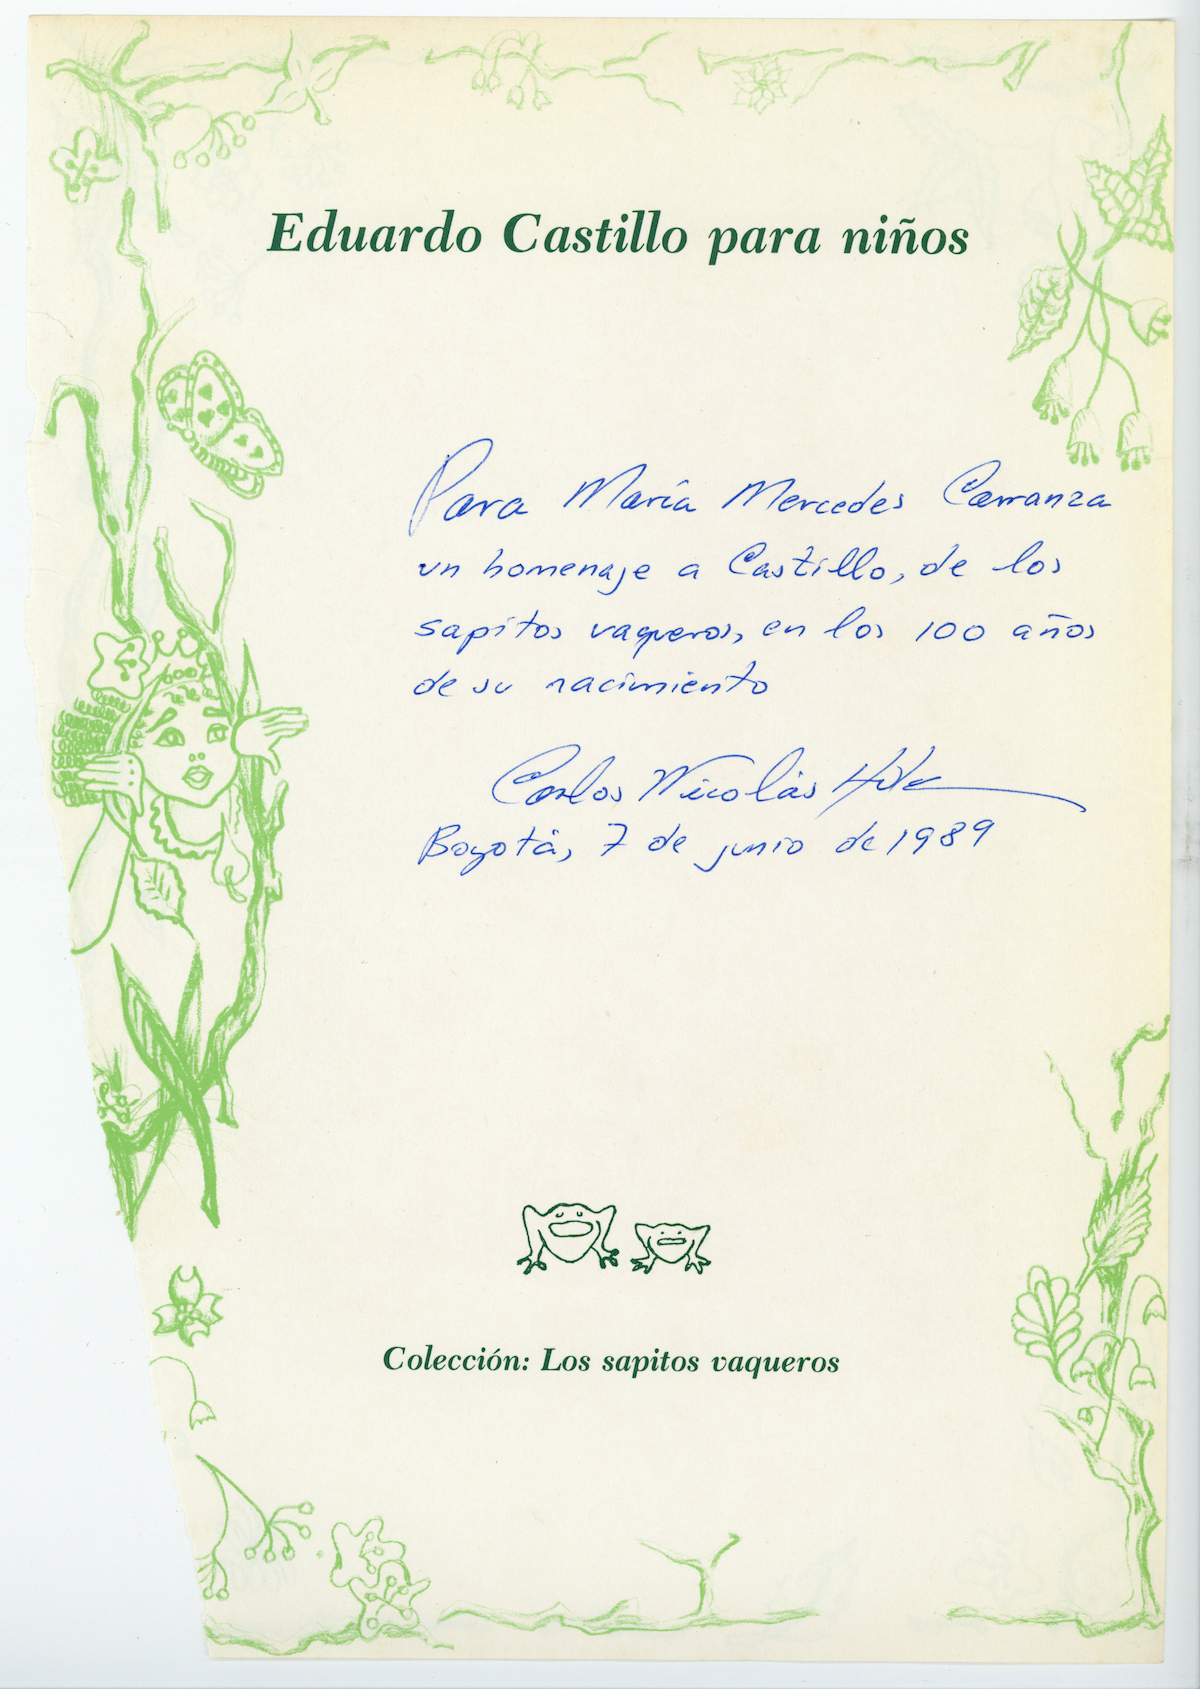 Eduardo Castillo para niños
Para María Mercedes Carranza
un homenaje a Castillo, de los
sapitos vaqueros, en los 100 años
de su nacimiento
Carlos Nicolás
Bogotá, 7 de junio de 1989
Colección: Los sapitos vaqueros